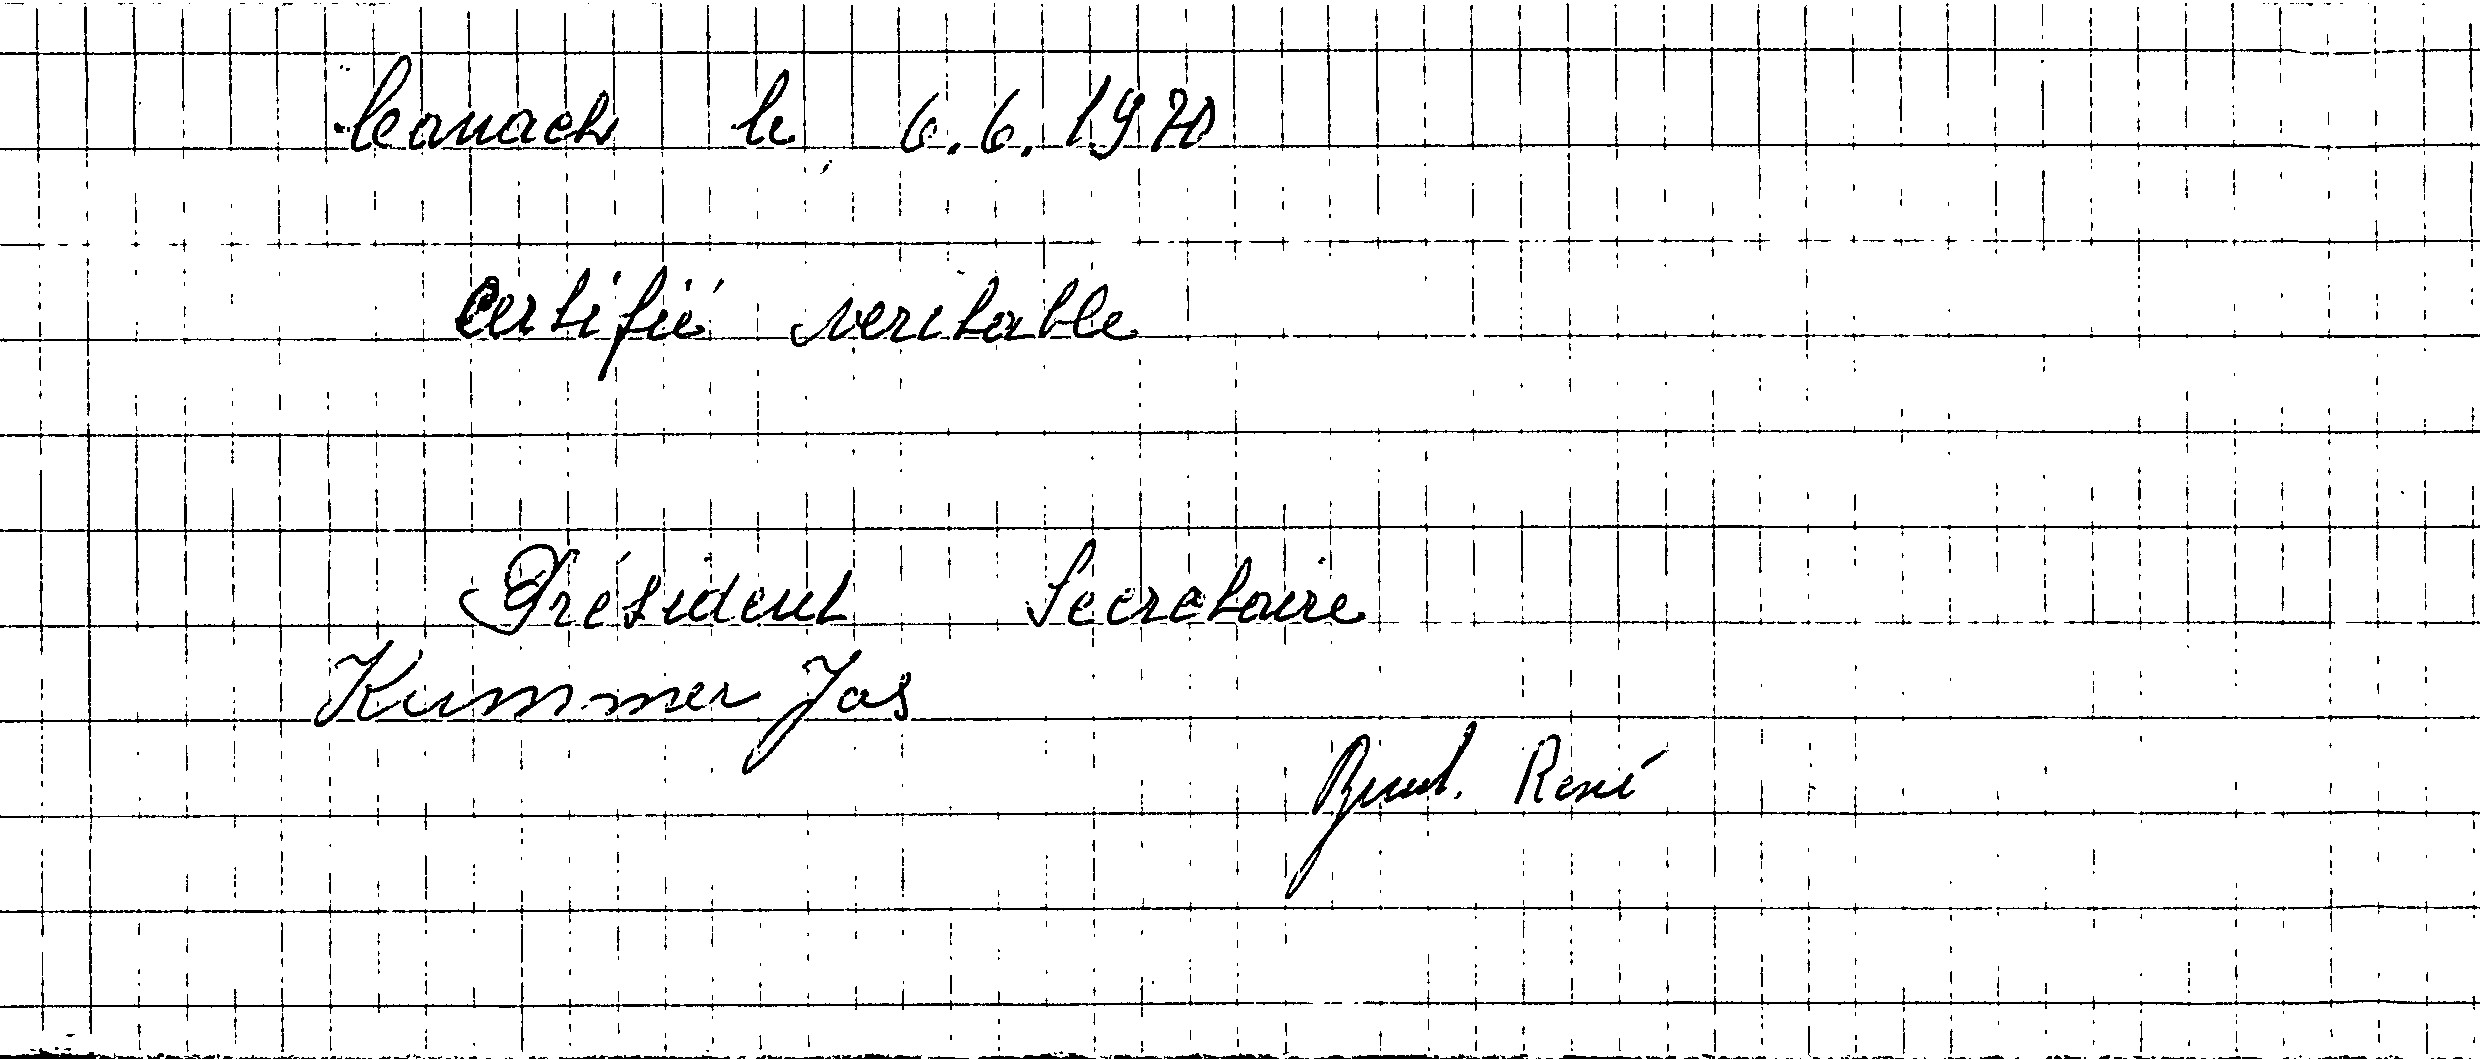 Canach le 6.6.1970
Certifié veritable
Président Secretaire
Kummer Jos
René